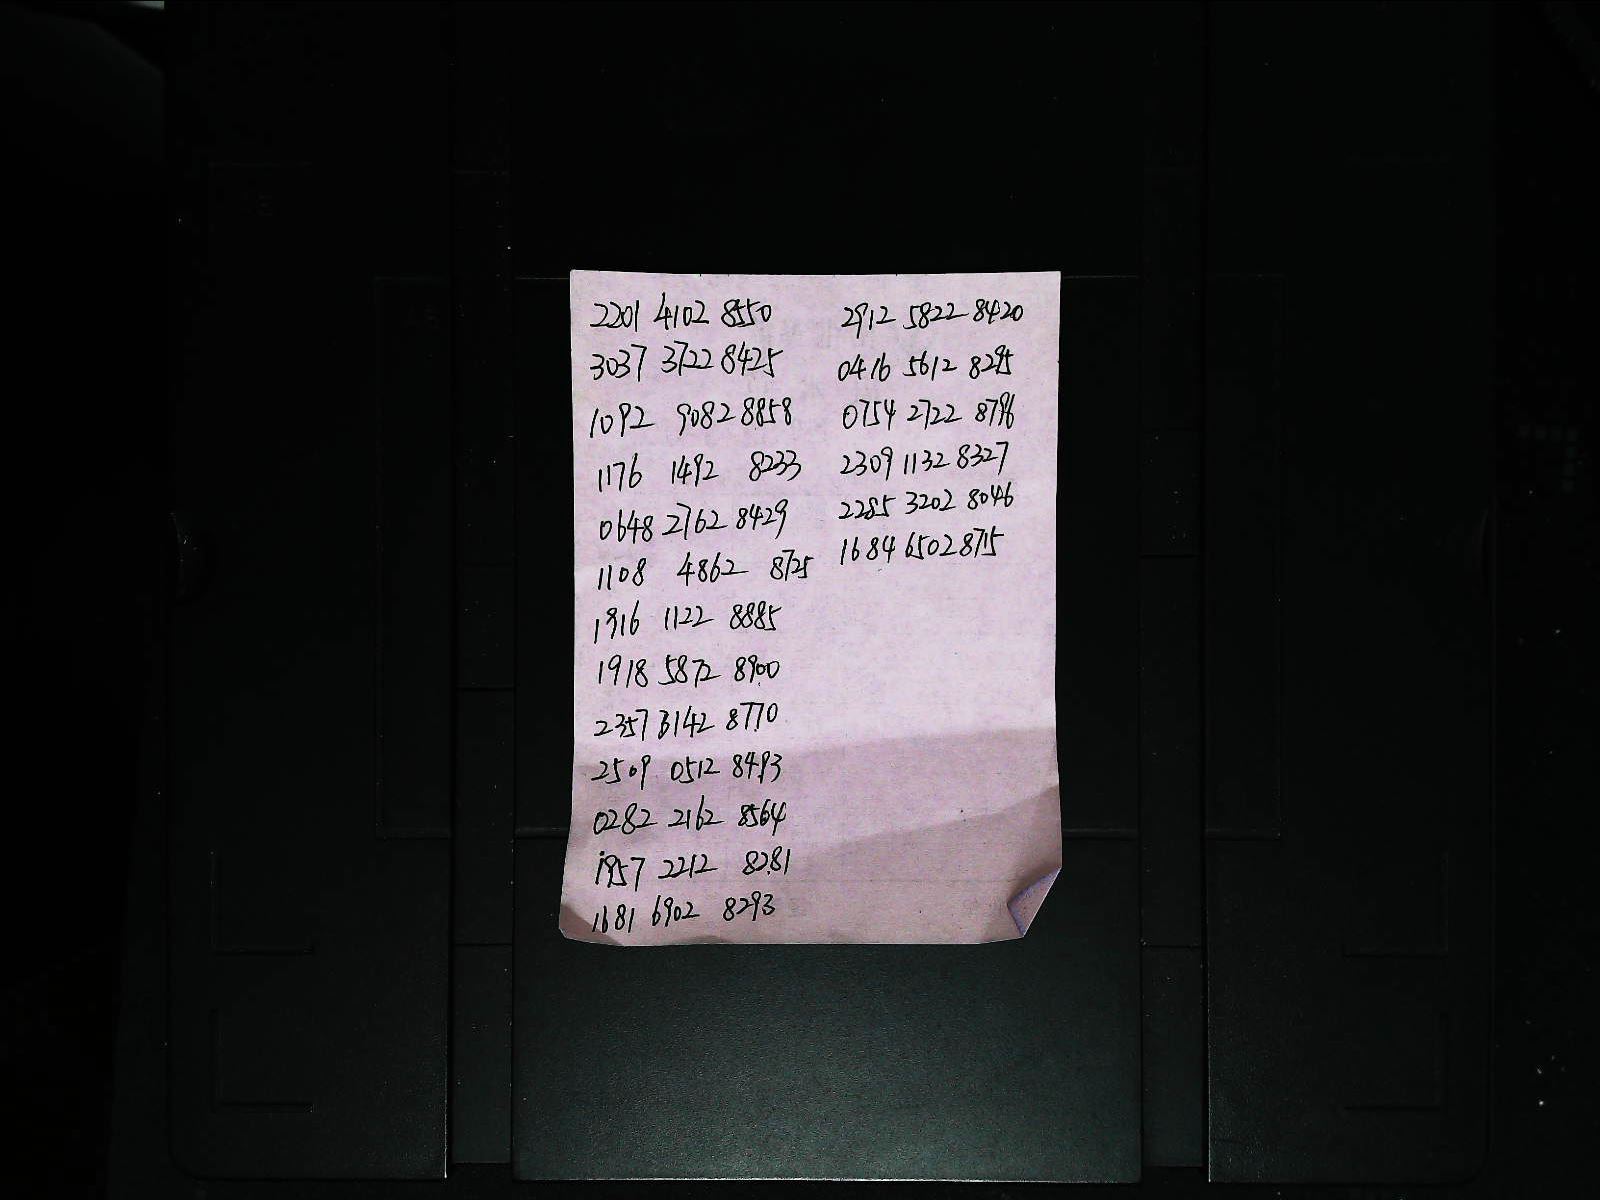 2201 4102 8550
3037 3722 8425
1092 9082 8858
1176 1492 8233
0648 2762 8429
1108 4862 8725
1916 1122 8885
1918 5872 8900
2357 3142 8770
2509 0512 8493
0282 2162 8564
1957 2212 8281
1681 6902 8293
2912 5822 8420
0416 5612 8295
0754 2722 8796
2309 1132 8327
2285 3202 8046
1684 6502 8715